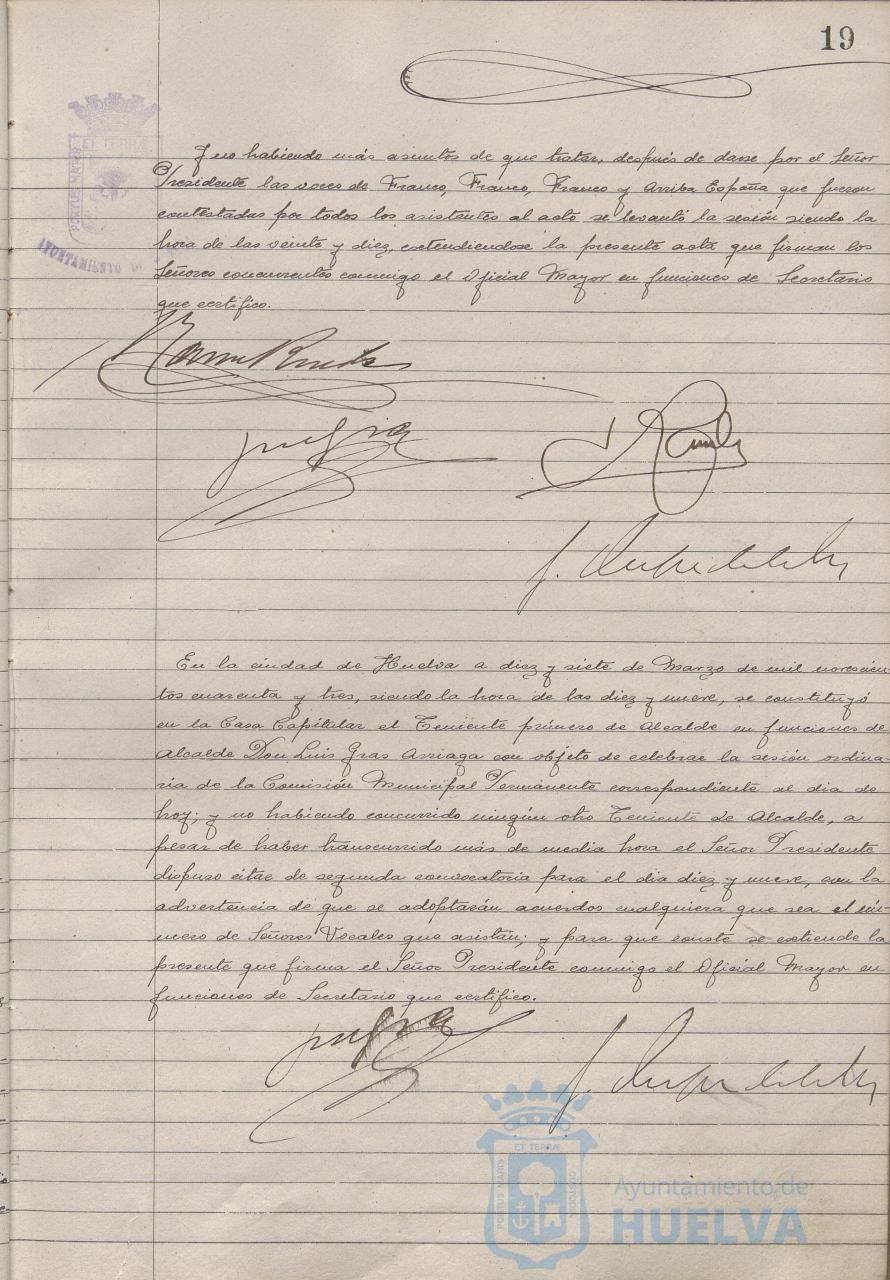 19
Y no habiendo más asuntos de que tratar, después de darse por el Señor
Presidente las voces de Franco, Franco, Franco y Arriba España que fueron
contestadas por todos los asistentes al acto se levantó la sesión siendo la
hora de las veinte y diez, extendiendose la presente acta que firman los
Señores concurrentes conmigo el Oficial Mayor en funciones de Secretario
que certifico.
En la ciudad de Huelva a diez y siete de Marzo de mil novecien-
tos cuarenta y tres, siendo la hora de las diez y nueve, se constituyó
en la Casa Capitular el Teniente primero de Alcalde en funciones de
Alcalde Don Luis Gras Arriaga con objeto de celebrar la sesión ordina-
ria de la Comisión Municipal Permanente correspondiente al dia de
hoy; y no habiendo concurrido ningún otro Teniente de Alcalde, a
pesar de haber transcurrido más de media hora el Señor Presidente
dispuso citar de segunda convocatoria para el dia diez y nueve, con la
advertencia de que se adoptarán acuerdos cualquiera que sea el nú-
mero de Señores Vocales que asistan; y para que conste se extiende la
presente que firma el Señor Presidente conmigo el Oficial Mayor en
funciones de Secretario que certifico.
ET TERRÆ
PORTUS MARIS
AYUNTAMIENTO DE
ET TERRÆ
PORTUS MARIS
CUSTODIA
Ayuntamiento de
HUELVA